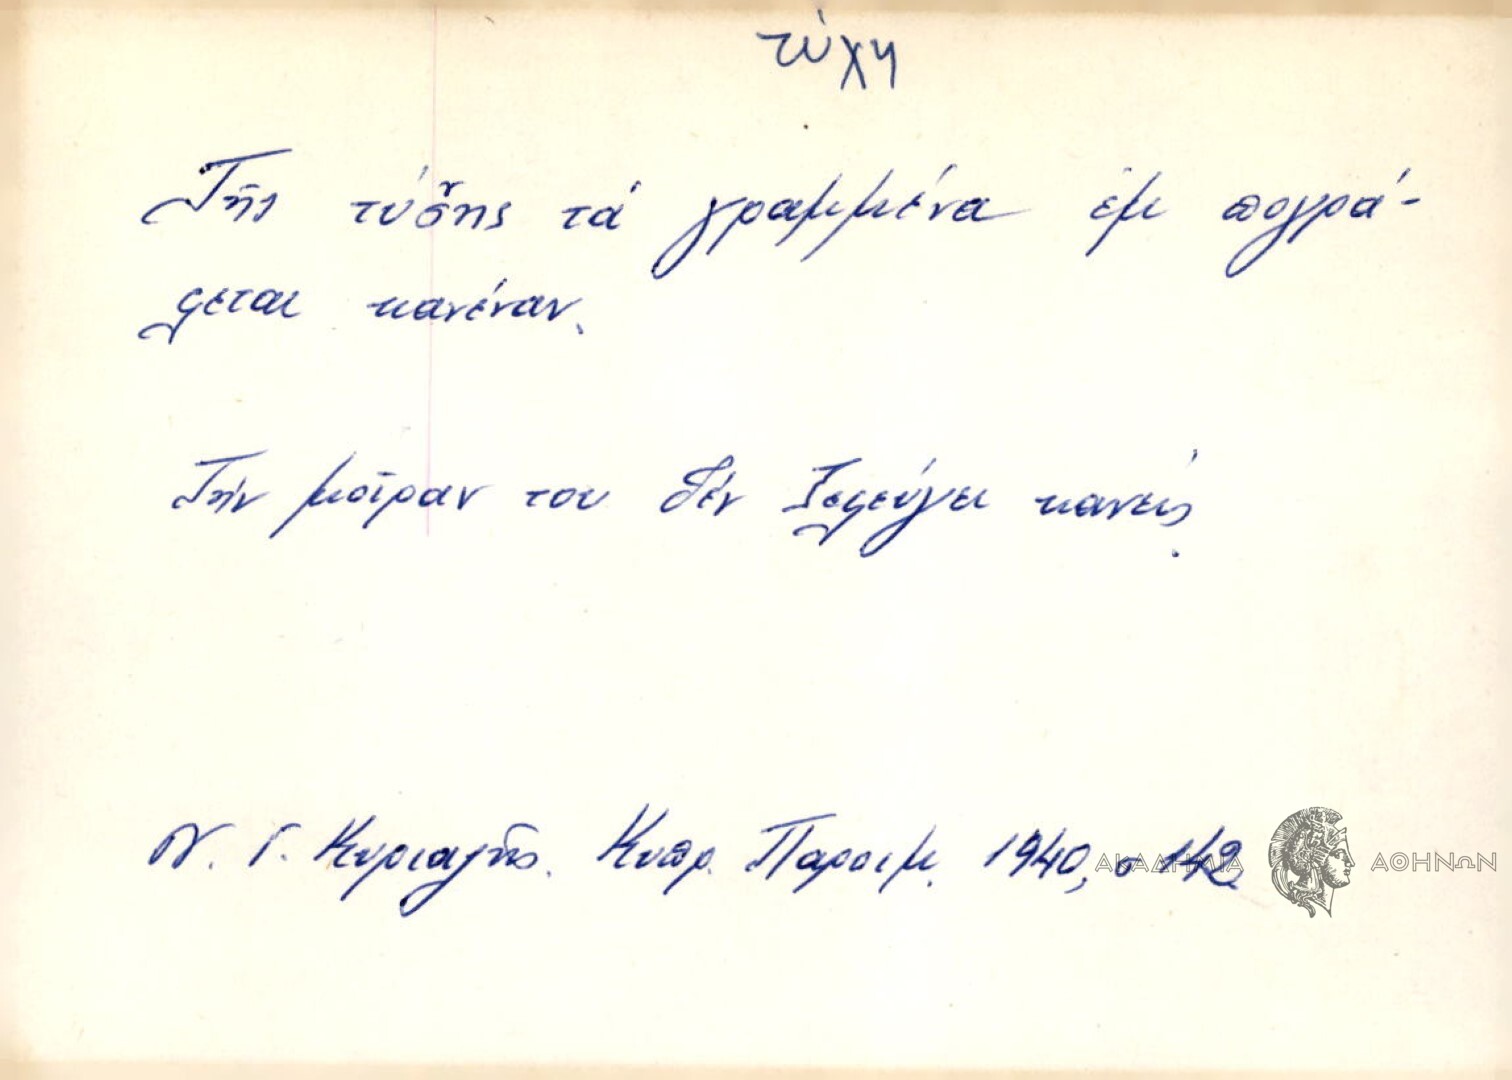 τύχη
Τῆς τύσ̌ης τά γραμμένα ἐμ πογρά-
φεται κανέναν.
Τήν μοῖραν του δέν ξεφεύγει κανείς.
Ν. Γ. Κυριαζῆς. Κυπρ. Παροιμ. 1940, σ 142
ΑΚΑΔΗΜΙΑ ΑΘΗΝΩΝ